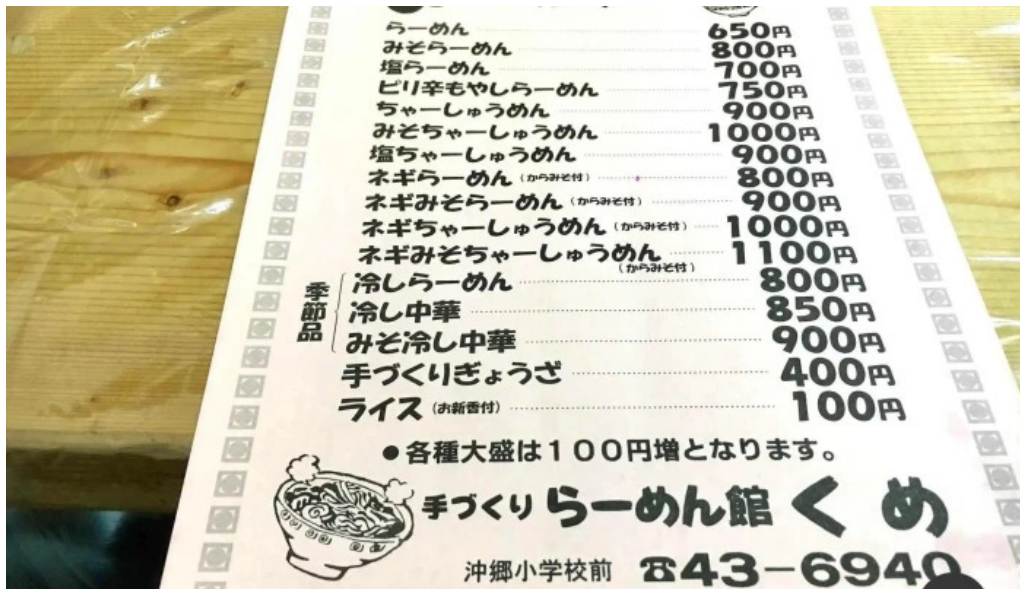 らーめん 650円
みそらーめん 800円
塩らーめん 700円
ピリ辛もやしらーめん 750円
ちゃーしゅうめん 900円
みそちゃーしゅうめん 1000円
塩ちゃーしゅうめん 900円
ネギらーめん(からみそ付) 800円
ネギみそらーめん(からみそ付) 900円
ネギちゃーしゅうめん(からみそ付) 1000円
ネギみそちゃーしゅうめん 1100円
(からみそ付)
季節品
冷しらーめん 800円
冷し中華 850円
みそ冷し中華 900円
手づくりぎょうざ 400円
ライス(お新香付) 100円
●各種大盛は100円増となります。
手づくり らーめん館 くめ
沖郷小学校前 ☎43-6940